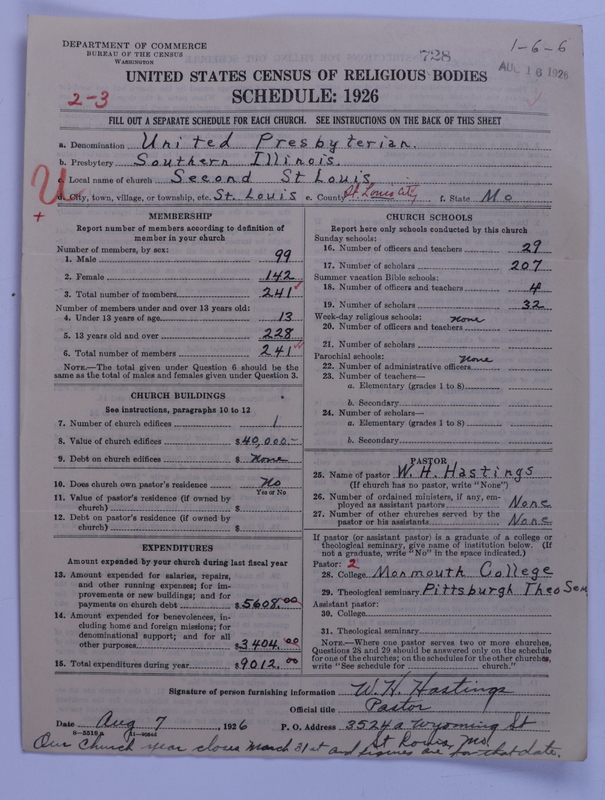 DEPARTMENT OF COMMERCE
BUREAU OF THE CENSUS
WASHINGTON
728
1-6-6
AUG 18 1926
UNITED STATES CENSUS OF RELIGIOUS BODIES
2-3
SCHEDULE: 1926
FILL OUT A SEPARATE SCHEDULE FOR EACH CHURCH. SEE INSTRUCTIONS ON THE BACK OF THIS SHEET
a. Denomination United Presbyterian.
b. Presbytery Southern Illinois.
c. Local name of church Second St Louis
d. City, town, village, or township, etc. St. Louis e. County St. Louis City f. State Mo
U
+
MEMBERSHIP
Report number of members according to definition of member in your church
Number of members, by sex:
1. Male 99
2. Female 142
3. Total number of members 241
Number of members under and over 13 years old:
4. Under 13 years of age 13
5. 13 years old and over 228
6. Total number of members 241
NOTE.—The total given under Question 6 should be the
same as the total of males and females given under Question 3.
CHURCH BUILDINGS
See instructions, paragraphs 10 to 12
7. Number of church edifices 1
8. Value of church edifices $40,000.—
9. Debt on church edifices $ None
10. Does church own pastor's residence No
Yes or No
11. Value of pastor's residence (if owned by
church) $
12. Debt on pastor's residence (if owned by
church) $
EXPENDITURES
Amount expended by your church during last fiscal year
13. Amount expended for salaries, repairs,
and other running expenses; for im-
provements or new buildings; and for
payments on church debt $5608.00
14. Amount expended for benevolences, in-
cluding home and foreign missions; for
denominational support; and for all
other purposes $3404.00
15. Total expenditures during year $9012.00
CHURCH SCHOOLS
Report here only schools conducted by this church
Sunday schools:
16. Number of officers and teachers 29
17. Number of scholars 207
Summer vacation Bible schools:
18. Number of officers and teachers 4
19. Number of scholars 32
Week-day religious schools: none
20. Number of officers and teachers
21. Number of scholars
Parochial schools: none
22. Number of administrative officers
23. Number of teachers—
a. Elementary (grades 1 to 8)
b. Secondary
24. Number of scholars—
a. Elementary (grades 1 to 8)
b. Secondary
PASTOR
25. Name of pastor W. H. Hastings
(If church has no pastor, write "None")
26. Number of ordained ministers, if any, em-
ployed as assistant pastors None
27. Number of other churches served by the
pastor or his assistants None
If pastor (or assistant pastor) is a graduate of a college or
theological seminary, give name of institution below. (If
not a graduate, write "No" in the space indicated.)
Pastor: 2
28. College Monmouth College
29. Theological seminary Pittsburgh Theo Sem
Assistant pastor:
30. College
31. Theological seminary
NOTE.—Where one pastor serves two or more churches,
Questions 28 and 29 should be answered only on the schedule
for one of the churches; on the schedules for the other churches,
write "See schedule for church."
Signature of person furnishing information W. H. Hastings
Official title Pastor
Date Aug 7, 1926 P. O. Address 3524a Wyoming St
St Louis, Mo.
Our Church year closes March 31st and figures are for that date.